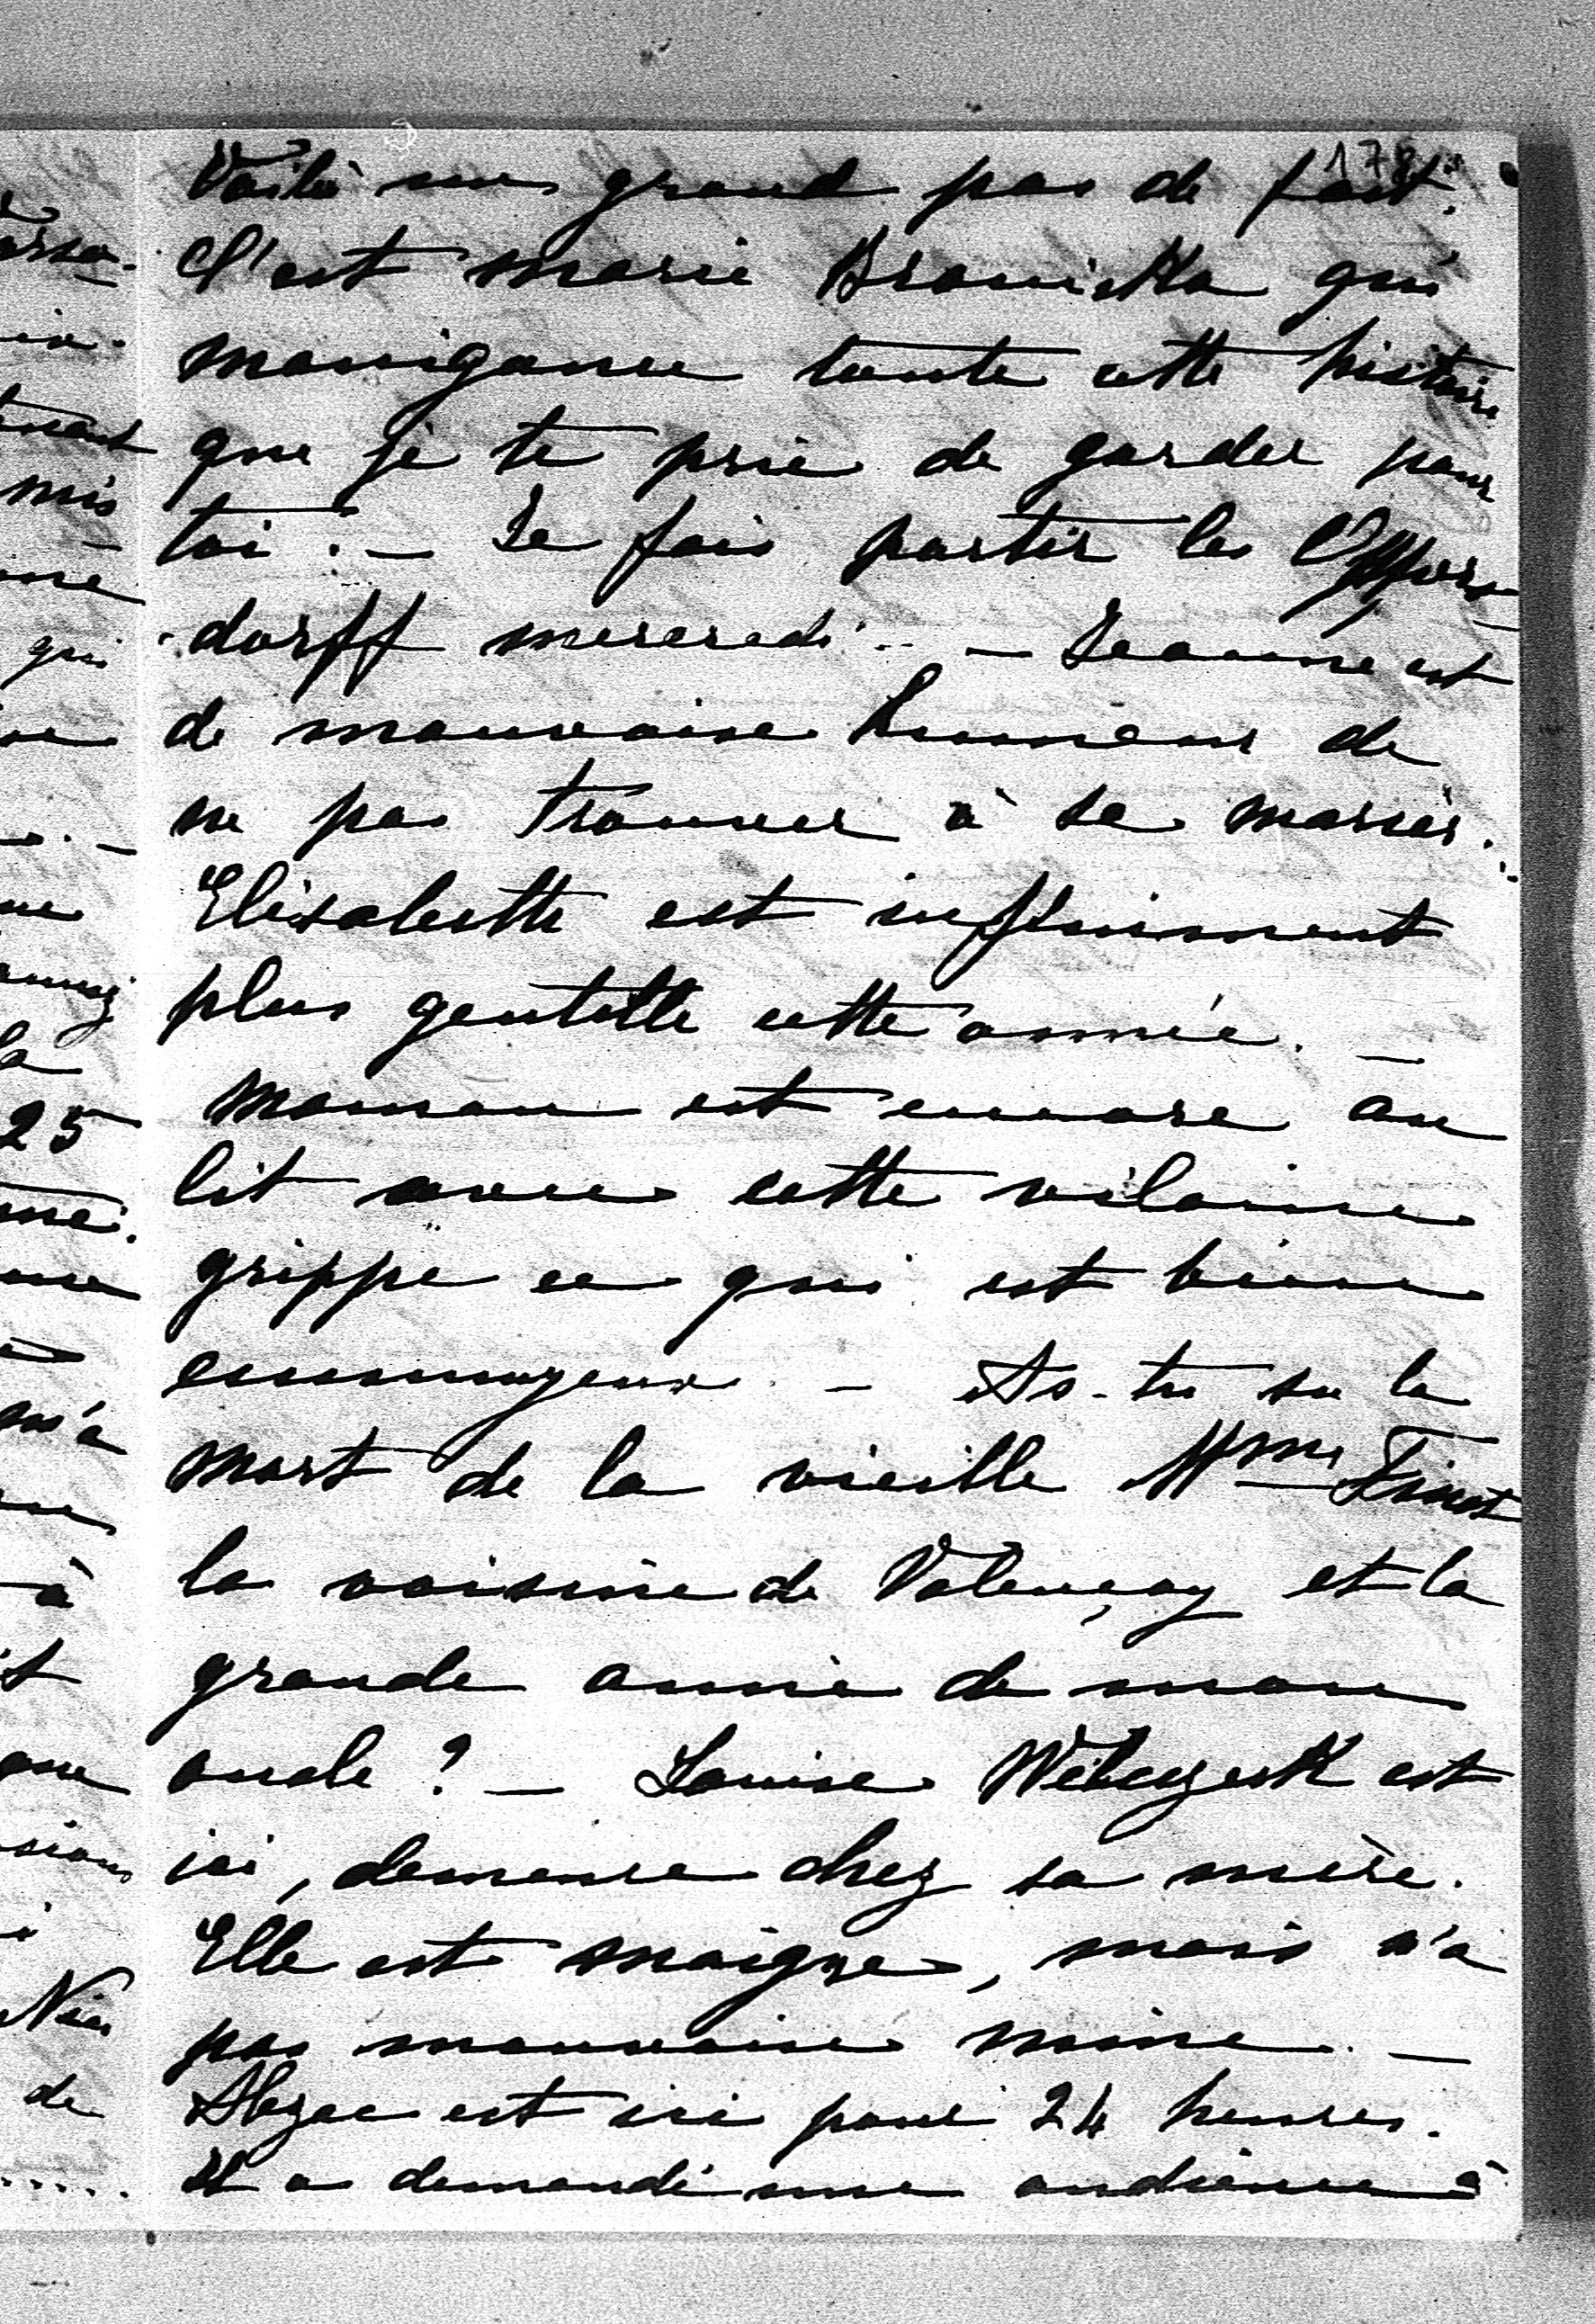 178
Voilà un grand pas de fait.
C'est Marie Branicka qui
manigance toute cette histoire
que je te prie de garder pour
toi. — Je fais partir les Oppers-
dorff mercredi. — Jeanne est
de mauvaise humeur de
ne pas trouver à se marier.
Elisabeth est infiniment
plus gentille cette année. —
Maman est encore au
lit avec cette vilaine
grippe ce qui est bien
ennuyeux. — As-tu su la
mort de la vieille Mme Finot
la voisine de Valençay et la
grande amie de mon
oncle ? — Louise Welczeck est
ici, demeure chez sa mère.
Elle est maigre, mais n'a
pas mauvaise mine. —
Abzac est ici pour 24 heures.
Il a demandé une audience à